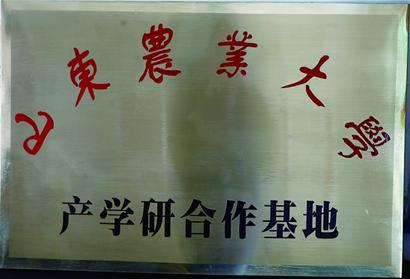 山東農業大學
产学研合作基地